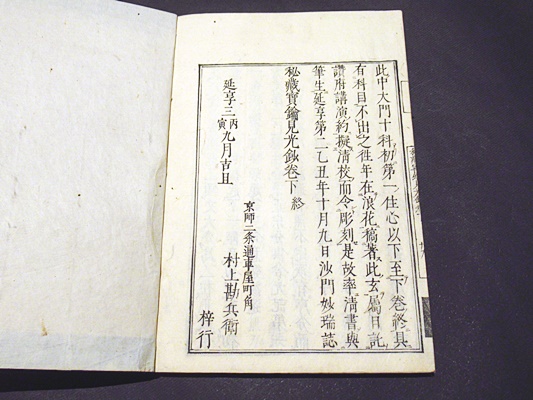 此中大門十科初第一住心以下至下卷終具
有科目不出之徃年在浪花稿著此玄屬日託
讃府講演約擬清校而令彫刻是故率清書與
筆生延享第二乙丑年十月九日沙門妙瑞誌
秘藏寶鑰見光鈔卷下終
延享三丙寅九月吉旦
京師二条通車屋町角
村上勘兵衛
梓行